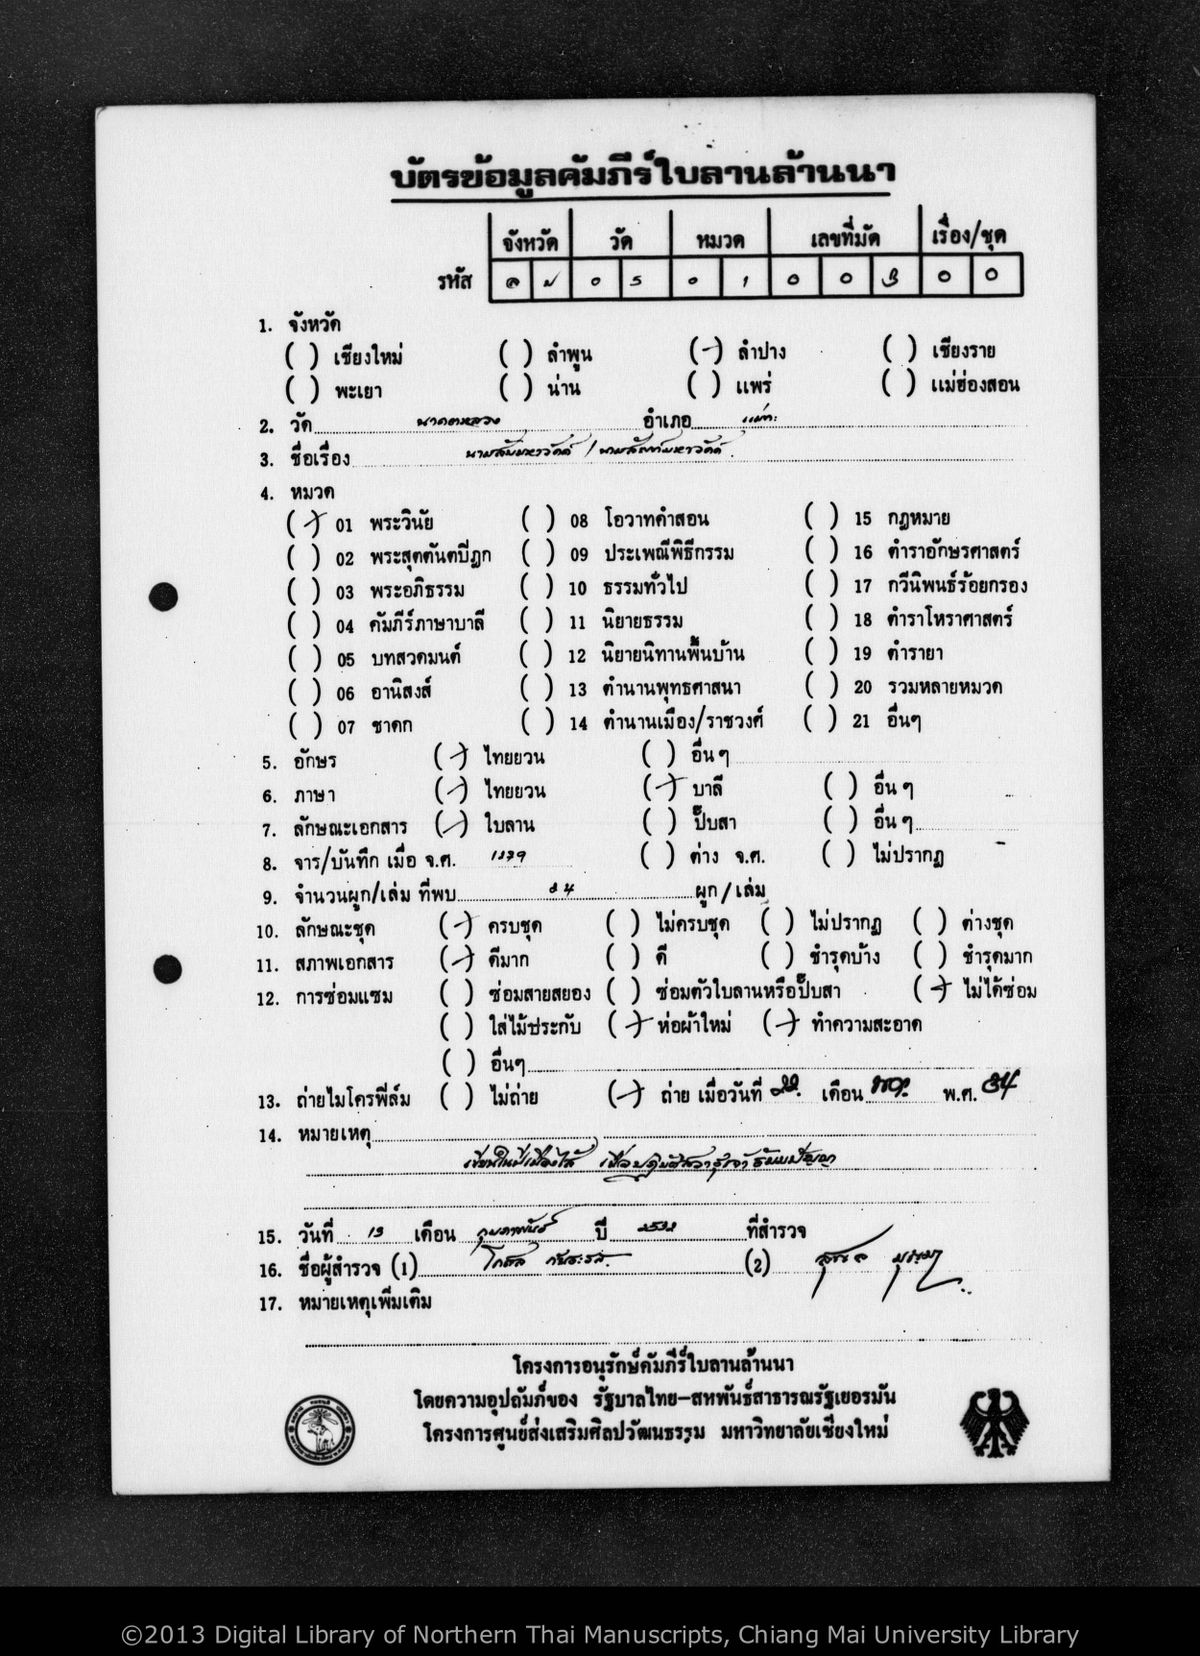 บัตรข้อมูลคัมภีร์ใบลานล้านนา
จังหวัด วัด หมวด เลขที่มัด เรื่อง/ชุด
รหัส ล ป 0 5 0 1 0 0 3 0 0
1. จังหวัด
( ) เชียงใหม่ ( ) ลำพูน (✓) ลำปาง ( ) เชียงราย
( ) พะเยา ( ) น่าน ( ) แพร่ ( ) แม่ฮ่องสอน
2. วัด นาคตหลวง อำเภอ แม่ทะ
3. ชื่อเรื่อง
4. หมวด
(✓) 01 พระวินัย ( ) 08 โอวาทคำสอน ( ) 15 กฎหมาย
( ) 02 พระสุตตันตปิฎก ( ) 09 ประเพณีพิธีกรรม ( ) 16 ตำราอักษรศาสตร์
( ) 03 พระอภิธรรม ( ) 10 ธรรมทั่วไป ( ) 17 กวีนิพนธ์ร้อยกรอง
( ) 04 คัมภีร์ภาษาบาลี ( ) 11 นิยายธรรม ( ) 18 ตำราโหราศาสตร์
( ) 05 บทสวดมนต์ ( ) 12 นิยายนิทานพื้นบ้าน ( ) 19 ตำรายา
( ) 06 อานิสงส์ ( ) 13 ตำนานพุทธศาสนา ( ) 20 รวมหลายหมวด
( ) 07 ชาดก ( ) 14 ตำนานเมือง/ราชวงศ์ ( ) 21 อื่นๆ
5. อักษร (✓) ไทยยวน ( ) อื่นๆ
6. ภาษา (✓) ไทยยวน (✓) บาลี ( ) อื่นๆ
7. ลักษณะเอกสาร (✓) ใบลาน ( ) ปั๊บสา ( ) อื่นๆ
8. จาร/บันทึก เมื่อ จ.ศ. ( ) ต่าง จ.ศ. ( ) ไม่ปรากฏ
9. จำนวนผูก/เล่ม ที่พบ ผูก/เล่ม
10. ลักษณะชุด (✓) ครบชุด ( ) ไม่ครบชุด ( ) ไม่ปรากฏ ( ) ต่างชุด
11. สภาพเอกสาร (✓) ดีมาก ( ) ดี ( ) ชำรุดบ้าง ( ) ชำรุดมาก
12. การซ่อมแซม ( ) ซ่อมสายสยอง ( ) ซ่อมตัวใบลานหรือปั๊บสา (✓) ไม่ได้ซ่อม
( ) ใส่ไม้ประกับ (✓) ห่อผ้าใหม่ (✓) ทำความสะอาด
( ) อื่นๆ
13. ถ่ายไมโครฟีล์ม ( ) ไม่ถ่าย (✓) ถ่าย เมื่อวันที่ 22 เดือน พย. พ.ศ. 34
14. หมายเหตุ
เขียนในปีเมืองไส้
15. วันที่ 13 เดือน กุมภาพันธ์ ปี 2532 ที่สำรวจ
16. ชื่อผู้สำรวจ (1) (2)
17. หมายเหตุเพิ่มเติม
โครงการอนุรักษ์คัมภีร์ใบลานล้านนา
โดยความอุปถัมภ์ของ รัฐบาลไทย-สหพันธ์สาธารณรัฐเยอรมัน
โครงการศูนย์ส่งเสริมศิลปวัฒนธรรม มหาวิทยาลัยเชียงใหม่
©2013 Digital Library of Northern Thai Manuscripts, Chiang Mai University Library